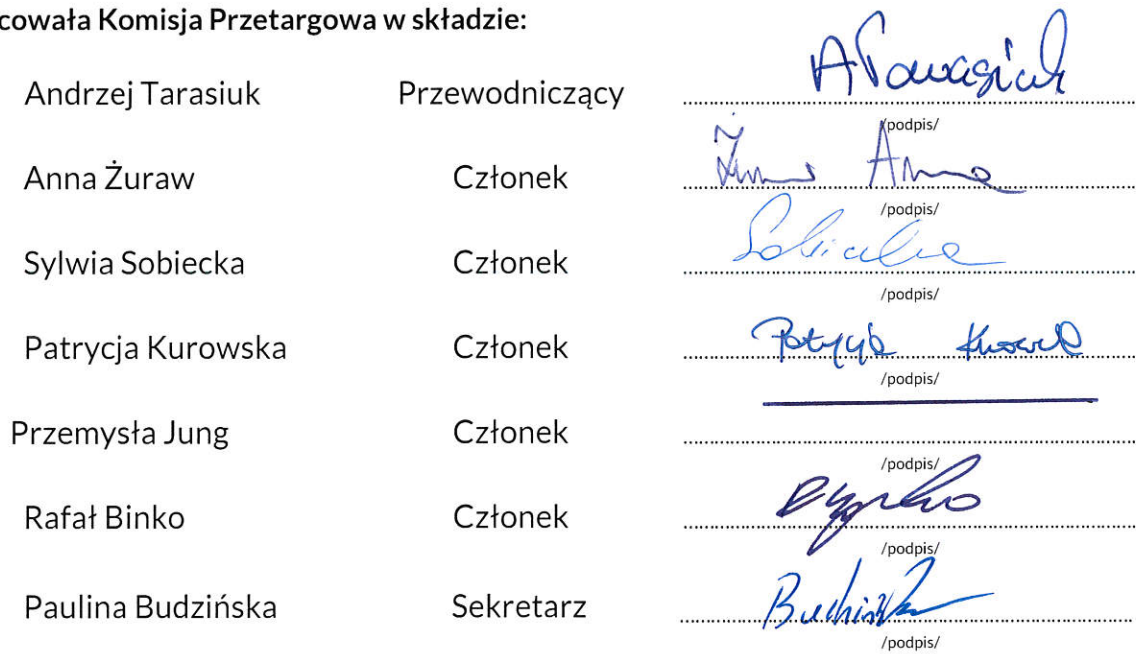 cowała Komisja Przetargowa w składzie:
Andrzej Tarasiuk Przewodniczący ATarasiuk
/podpis/
Anna Żuraw Członek Żuraw Anna
/podpis/
Sylwia Sobiecka Członek Sobiecka
/podpis/
Patrycja Kurowska Członek Patrycja
/podpis/
Przemysła Jung Członek
/podpis/
Rafał Binko Członek
/podpis/
Paulina Budzińska Sekretarz
/podpis/